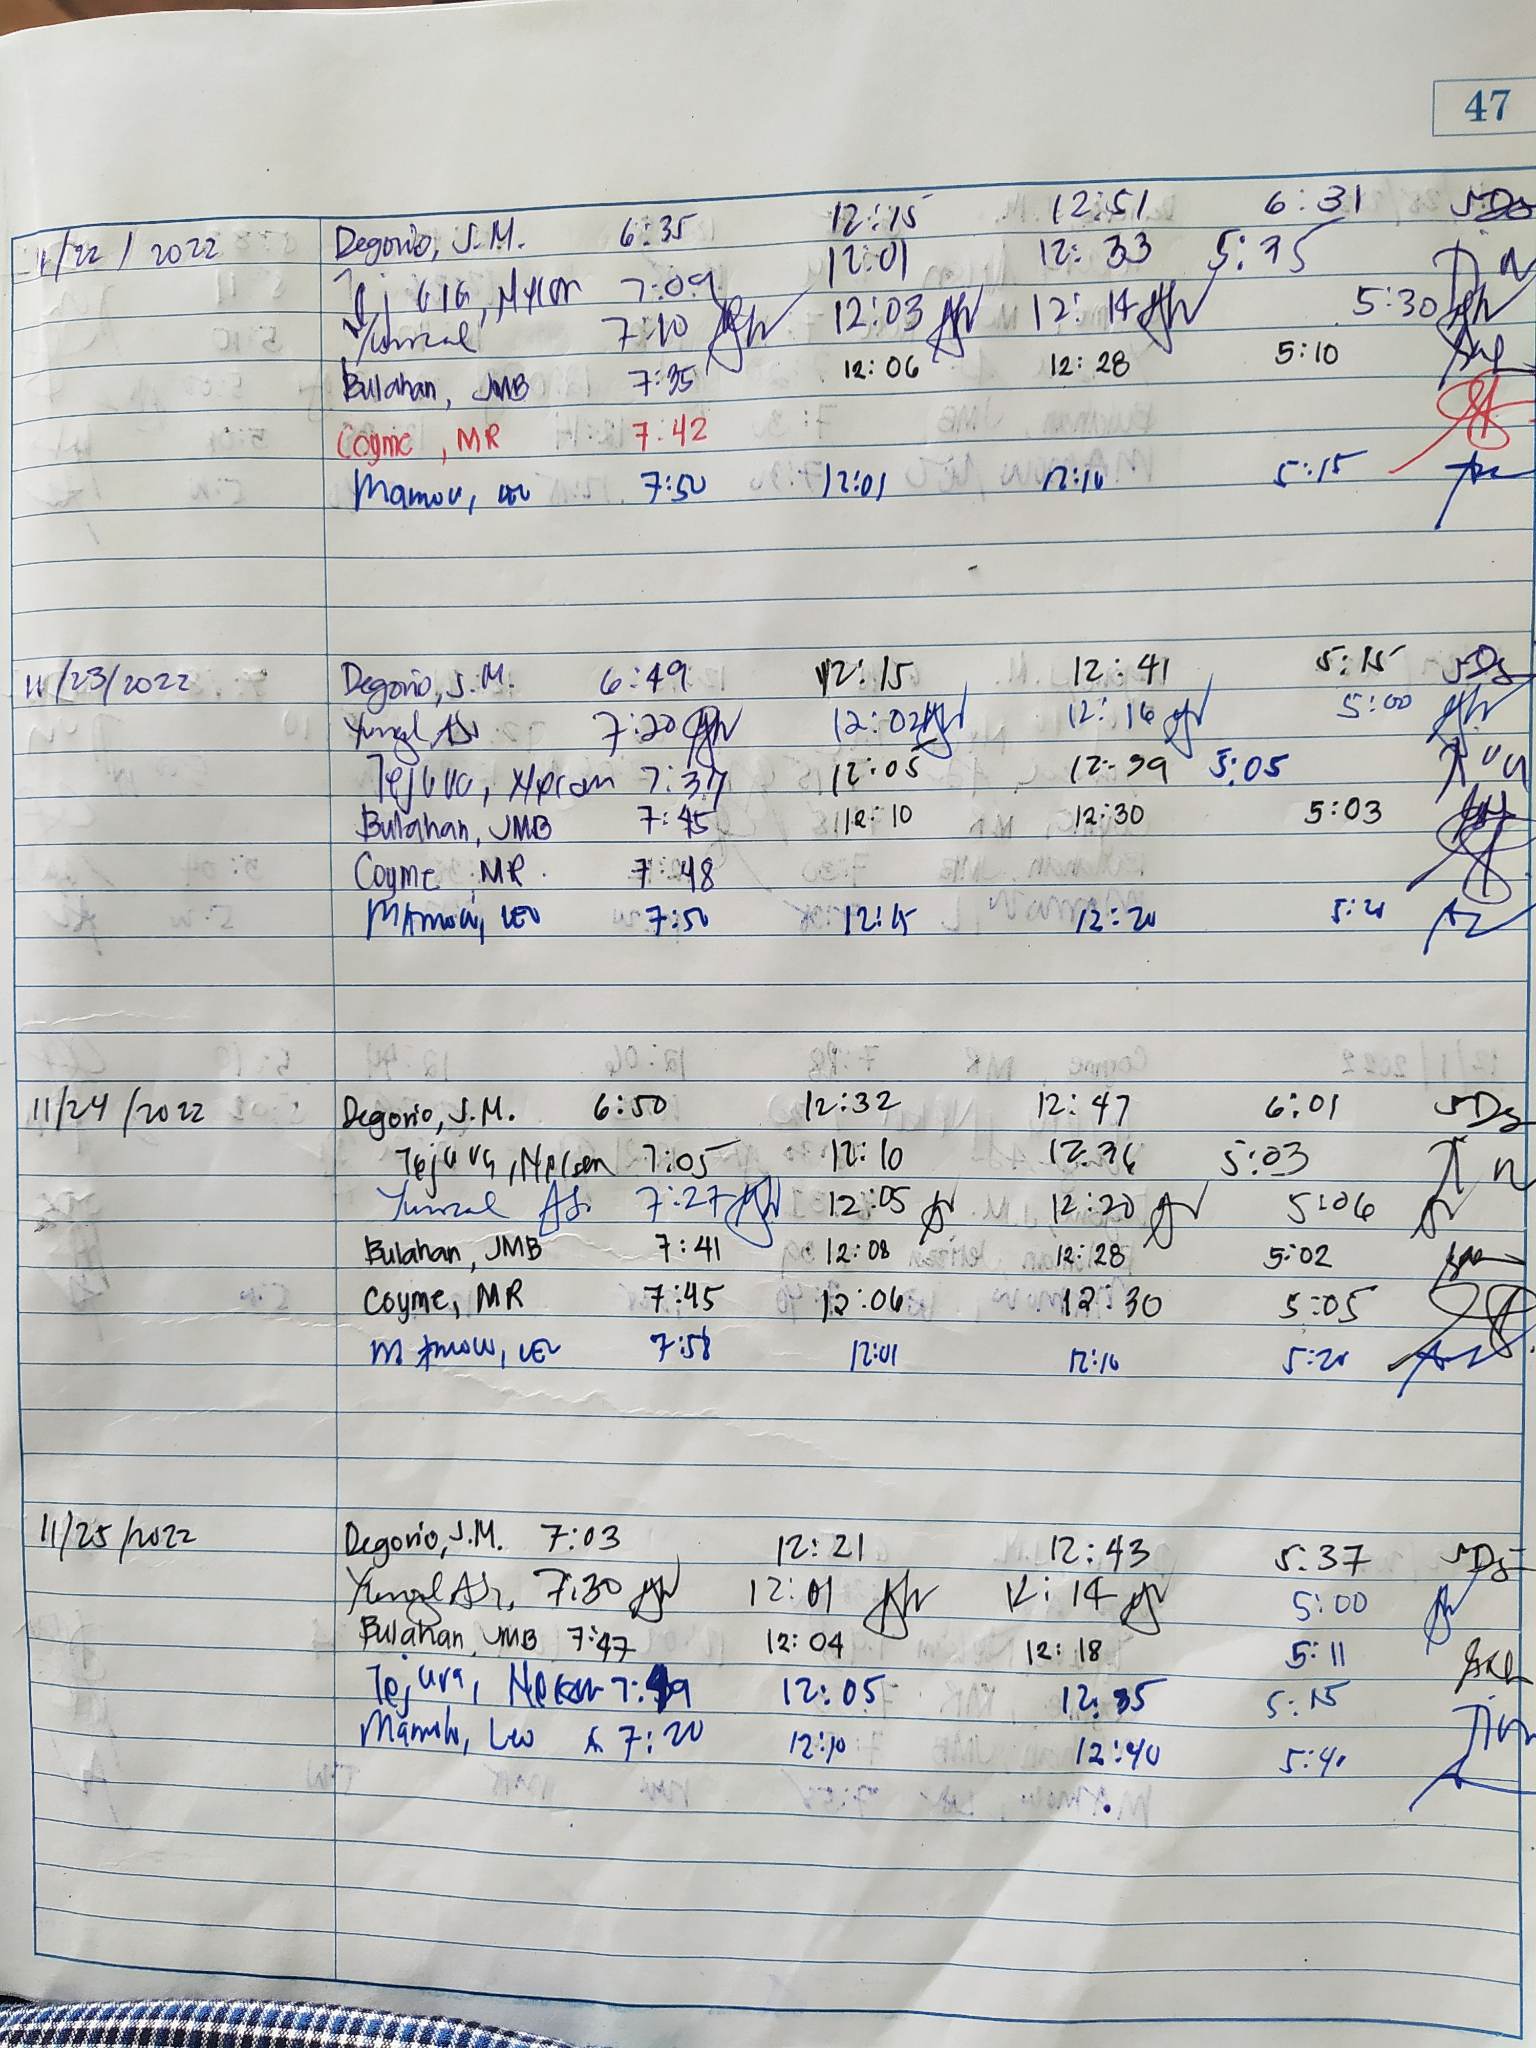 47
11/22/2022 Degorio, J.M. 6:35 12:15 12:51 6:31
7:09 12:01 12:33 5:35
7:10 12:03 12:14 5:30
Bulahan, JMB 7:35 12:06 12:28 5:10
Coyme, MR 7:42
Mamow, LEO 7:50 12:01 12:10 5:15
11/23/2022 Degorio, J.M. 6:49 12:15 12:41 5:15
7:20 12:02 12:16 5:00
Tejura, Nelson 7:37 12:05 12:39 5:05
Bulahan, JMB 7:45 12:10 12:30 5:03
Coyme, MR. 7:48
Mamow, LEO 7:50 12:15 12:20 5:20
11/24/2022 Degorio, J.M. 6:50 12:32 12:47 6:01
Tejura, Nelson 7:05 12:10 12:36 5:03
7:27 12:05 12:20 5:06
Bulahan, JMB 7:41 12:08 12:28 5:02
Coyme, MR 7:45 12:06 12:30 5:05
Mamow, LEO 7:58 12:01 12:10 5:20
11/25/2022 Degorio, J.M. 7:03 12:21 12:43 5:37
7:30 12:01 12:14 5:00
Bulahan, JMB 7:47 12:04 12:18 5:11
Tejura, Nelson 12:05 12:35 5:15
Leo 7:20 12:10 12:40 5:40